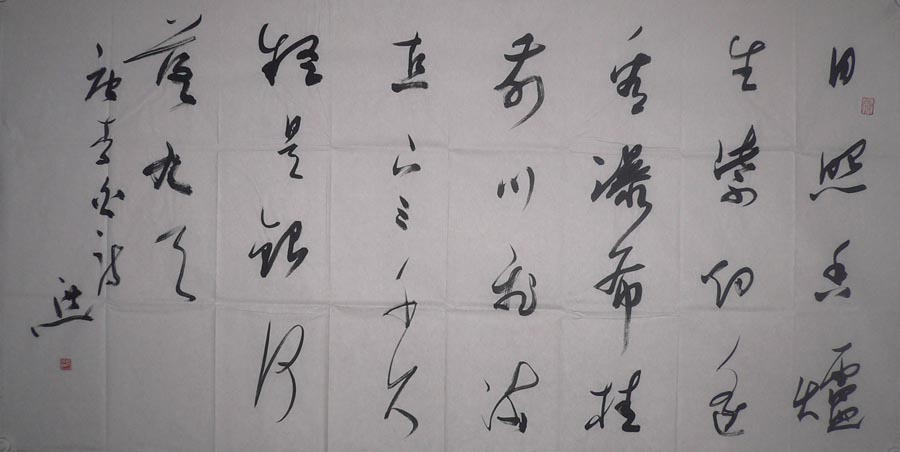 日照香爐
生紫烟遙
看瀑布挂
前川飛流
直下三千尺
疑是銀河
落九天
唐李白詩